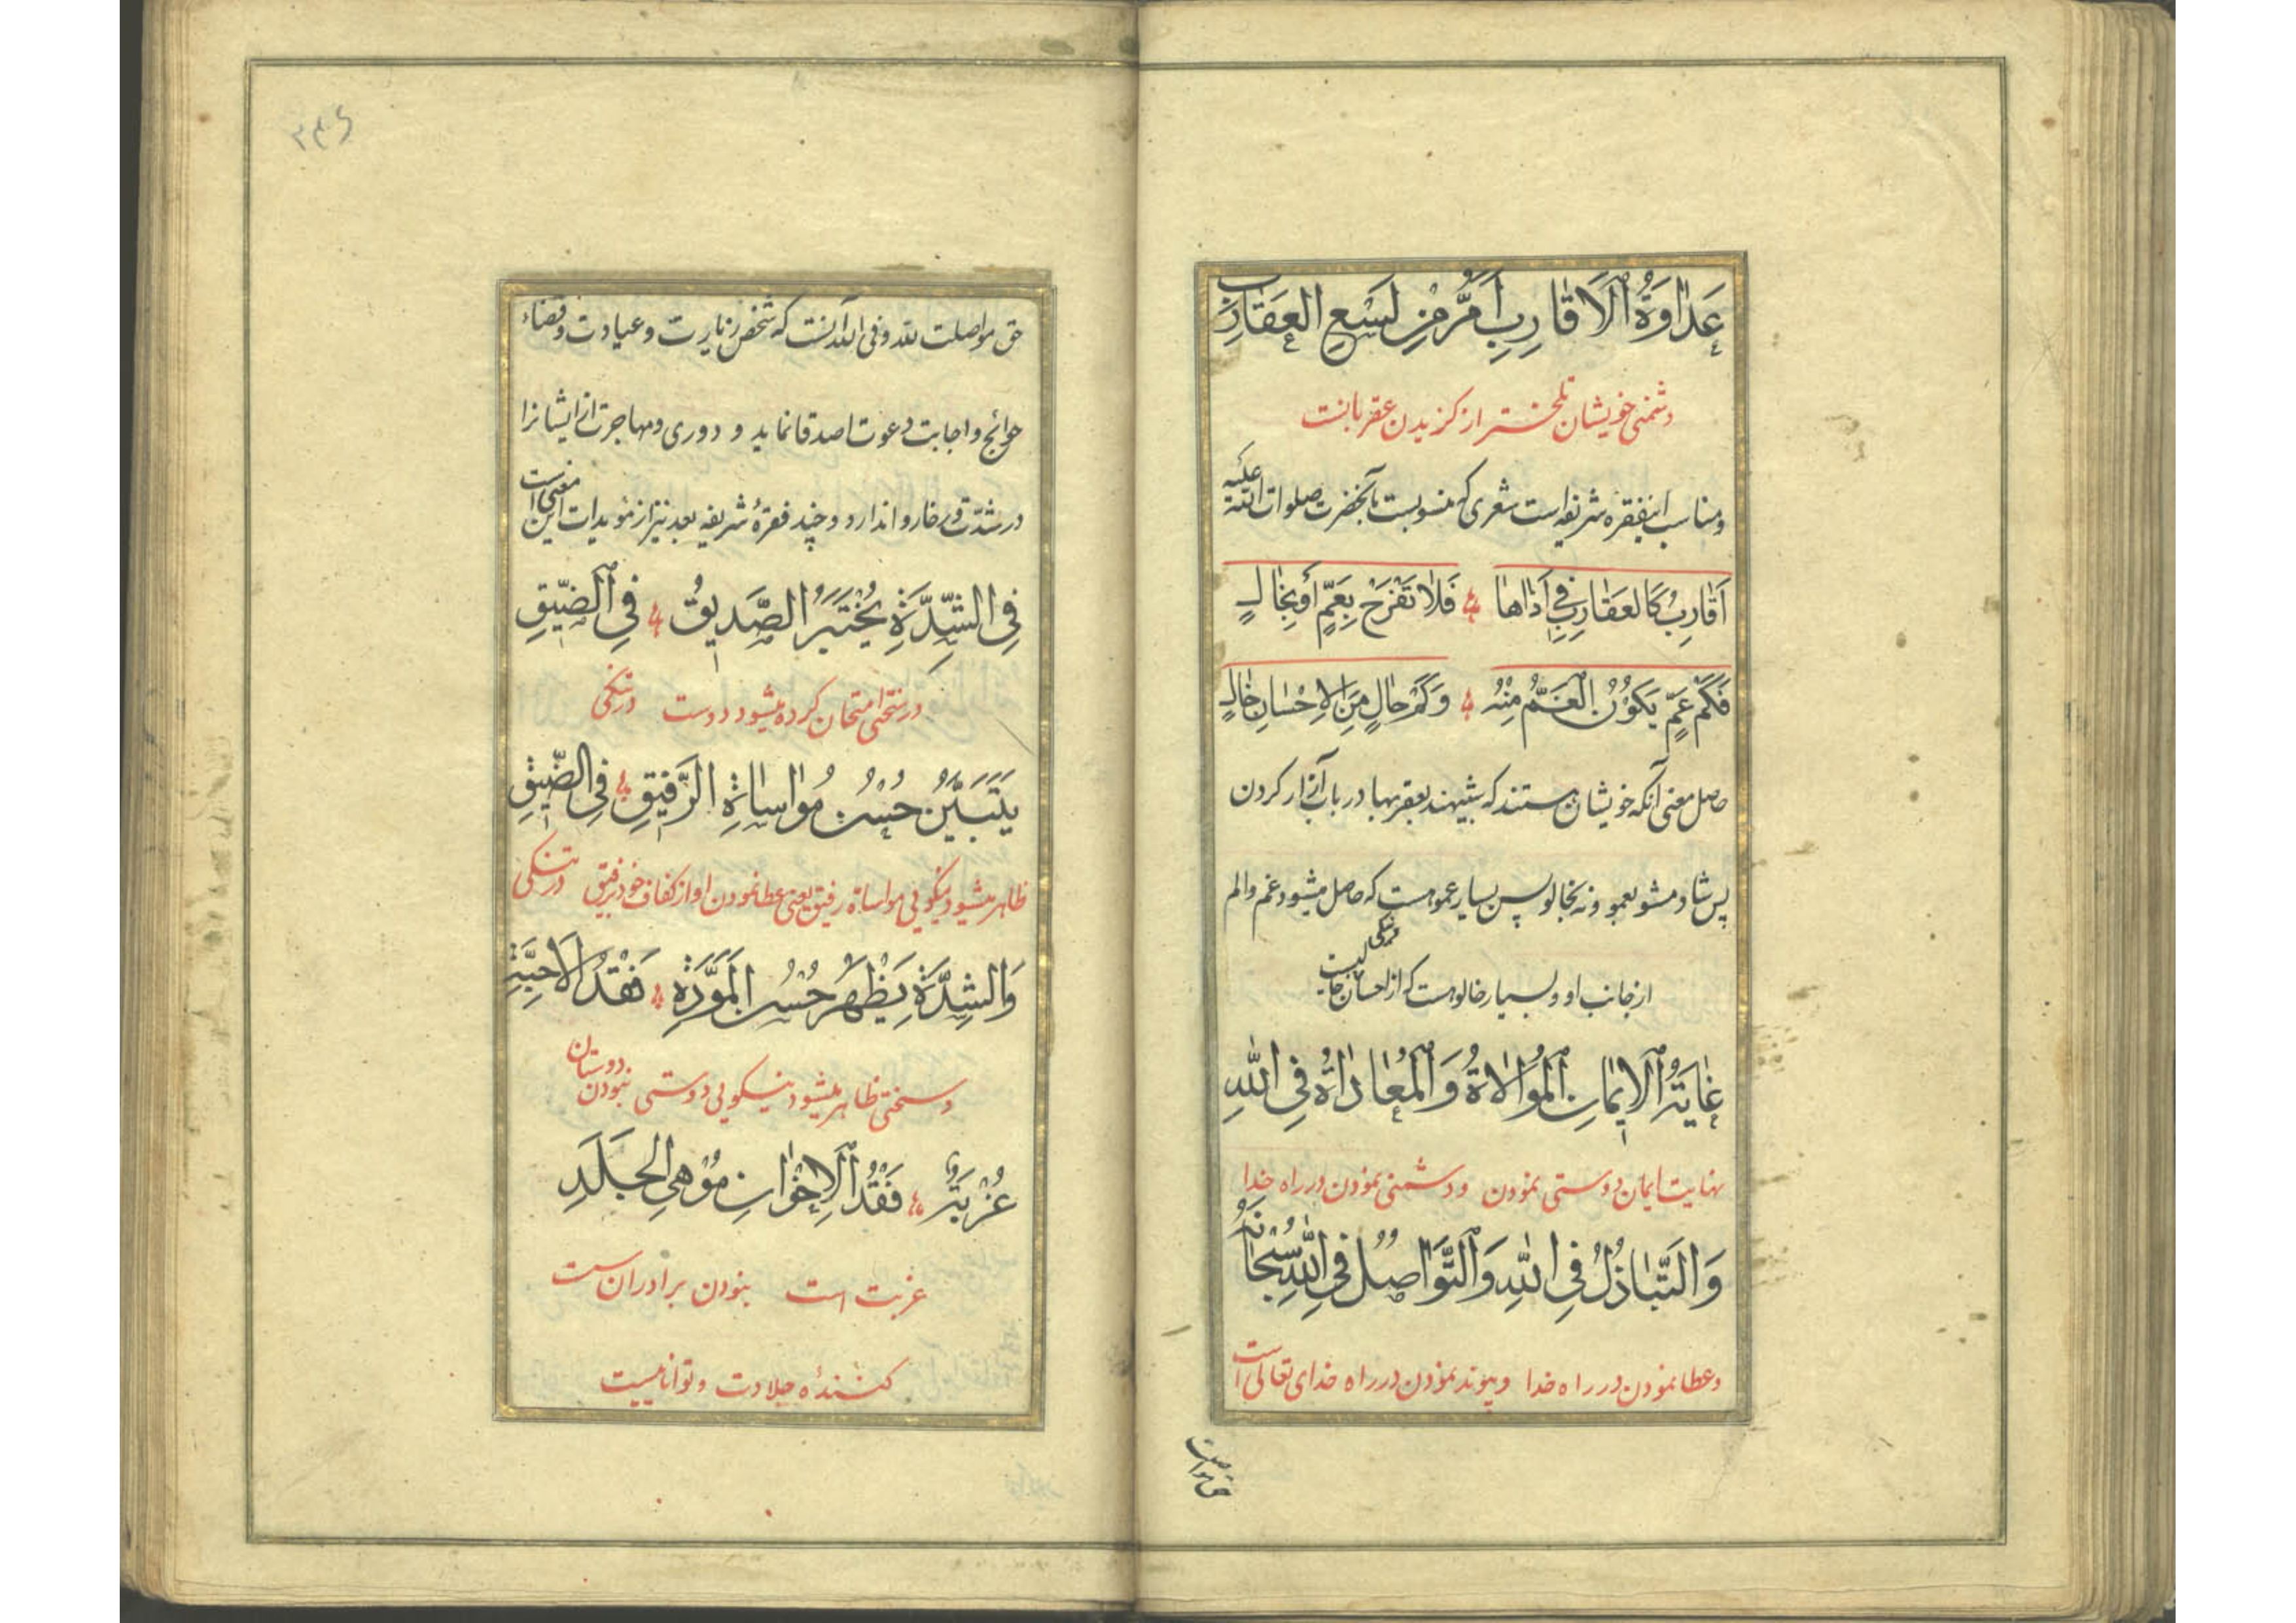 عَدٰاوَةُ الْاَقٰارِبِ اَمَرُّ مِنْ لَسْعِ الْعَقٰارِبِ
دشمنی خویشان تلختر از کزیدن عقربانست
و مناسب اینفقره شریفه است شعری که منسوبست بآنحضرت صلوات الله علیه
اَقٰارِبُ كَالْعَقٰارِبِ فِي اَذٰاهٰا فَلاٰ تَفْرَحْ بِعَمٍّ اَوْ بِخٰالٍ
فَكَمْ عَمٍّ يَكُوْنُ الْغَمُّ مِنْهُ وَكَمْ خٰالٍ مِنَ الْاِحْسٰانِ خٰالٍ
حاصل معنی آنکه خویشان هستند که شبیهند بعقربها در باب آزار کردن
پس شاد مشو بعمو و نه بخالو پس بسیار عمو هست که حاصل میشود غم و الم
از جانب او و بسیار خالو هست که از احسان خالیست
غٰايَةُ الْاِيْمٰانِ الْمُوٰالاٰةُ وَالْمُعٰادٰاةُ فِي اللّٰهِ
نهایت ایمان دوستی نمودن و دشمنی نمودن در راه خدا
وَالتَّبٰاذُلُ فِي اللّٰهِ وَالتَّوٰاصُلُ فِي اللّٰهِ سُبْحٰانَهُ
و عطا نمودن در راه خدا و پیوند نمودن در راه خدای تعالی است
حق مواصلت
۳۴۶
حق مواصلت لله و فی الله آنست که شخص زیارت و عیادت و قضاء
حوائج و اجابت دعوت اصدقا نماید و دوری و مهاجرت از ایشانرا
در شدت و رخا روا ندارد و چند فقرهٔ شریفه بعد نیز از مؤیدات این معنی است
فِي الشِّدَّةِ يُخْتَبَرُ الصَّدِيْقُ فِي الضِّيْقِ
در سختی امتحان کرده میشود دوست در تنکی
يَتَبَيَّنُ حُسْنُ مُوٰاسٰاةِ الرَّفِيْقِ فِي الضِّيْقِ
ظاهر میشود نیکویی مواساة رفیق یعنی عطا نمودن او از کفاف خود برفیق در تنکی
وَالشِّدَّةِ يَظْهَرُ حُسْنُ الْمَوَدَّةِ فَقْدُ الْاَحِبَّةِ
و سختی ظاهر میشود نیکویی دوستی نبودن دوستان
غُرْبَةٌ فَقْدُ الْاِخْوٰانِ مُوْهِي الْجَلَدِ
غربت است نبودن برادران سست
کنندهٔ جلادت و تواناییست